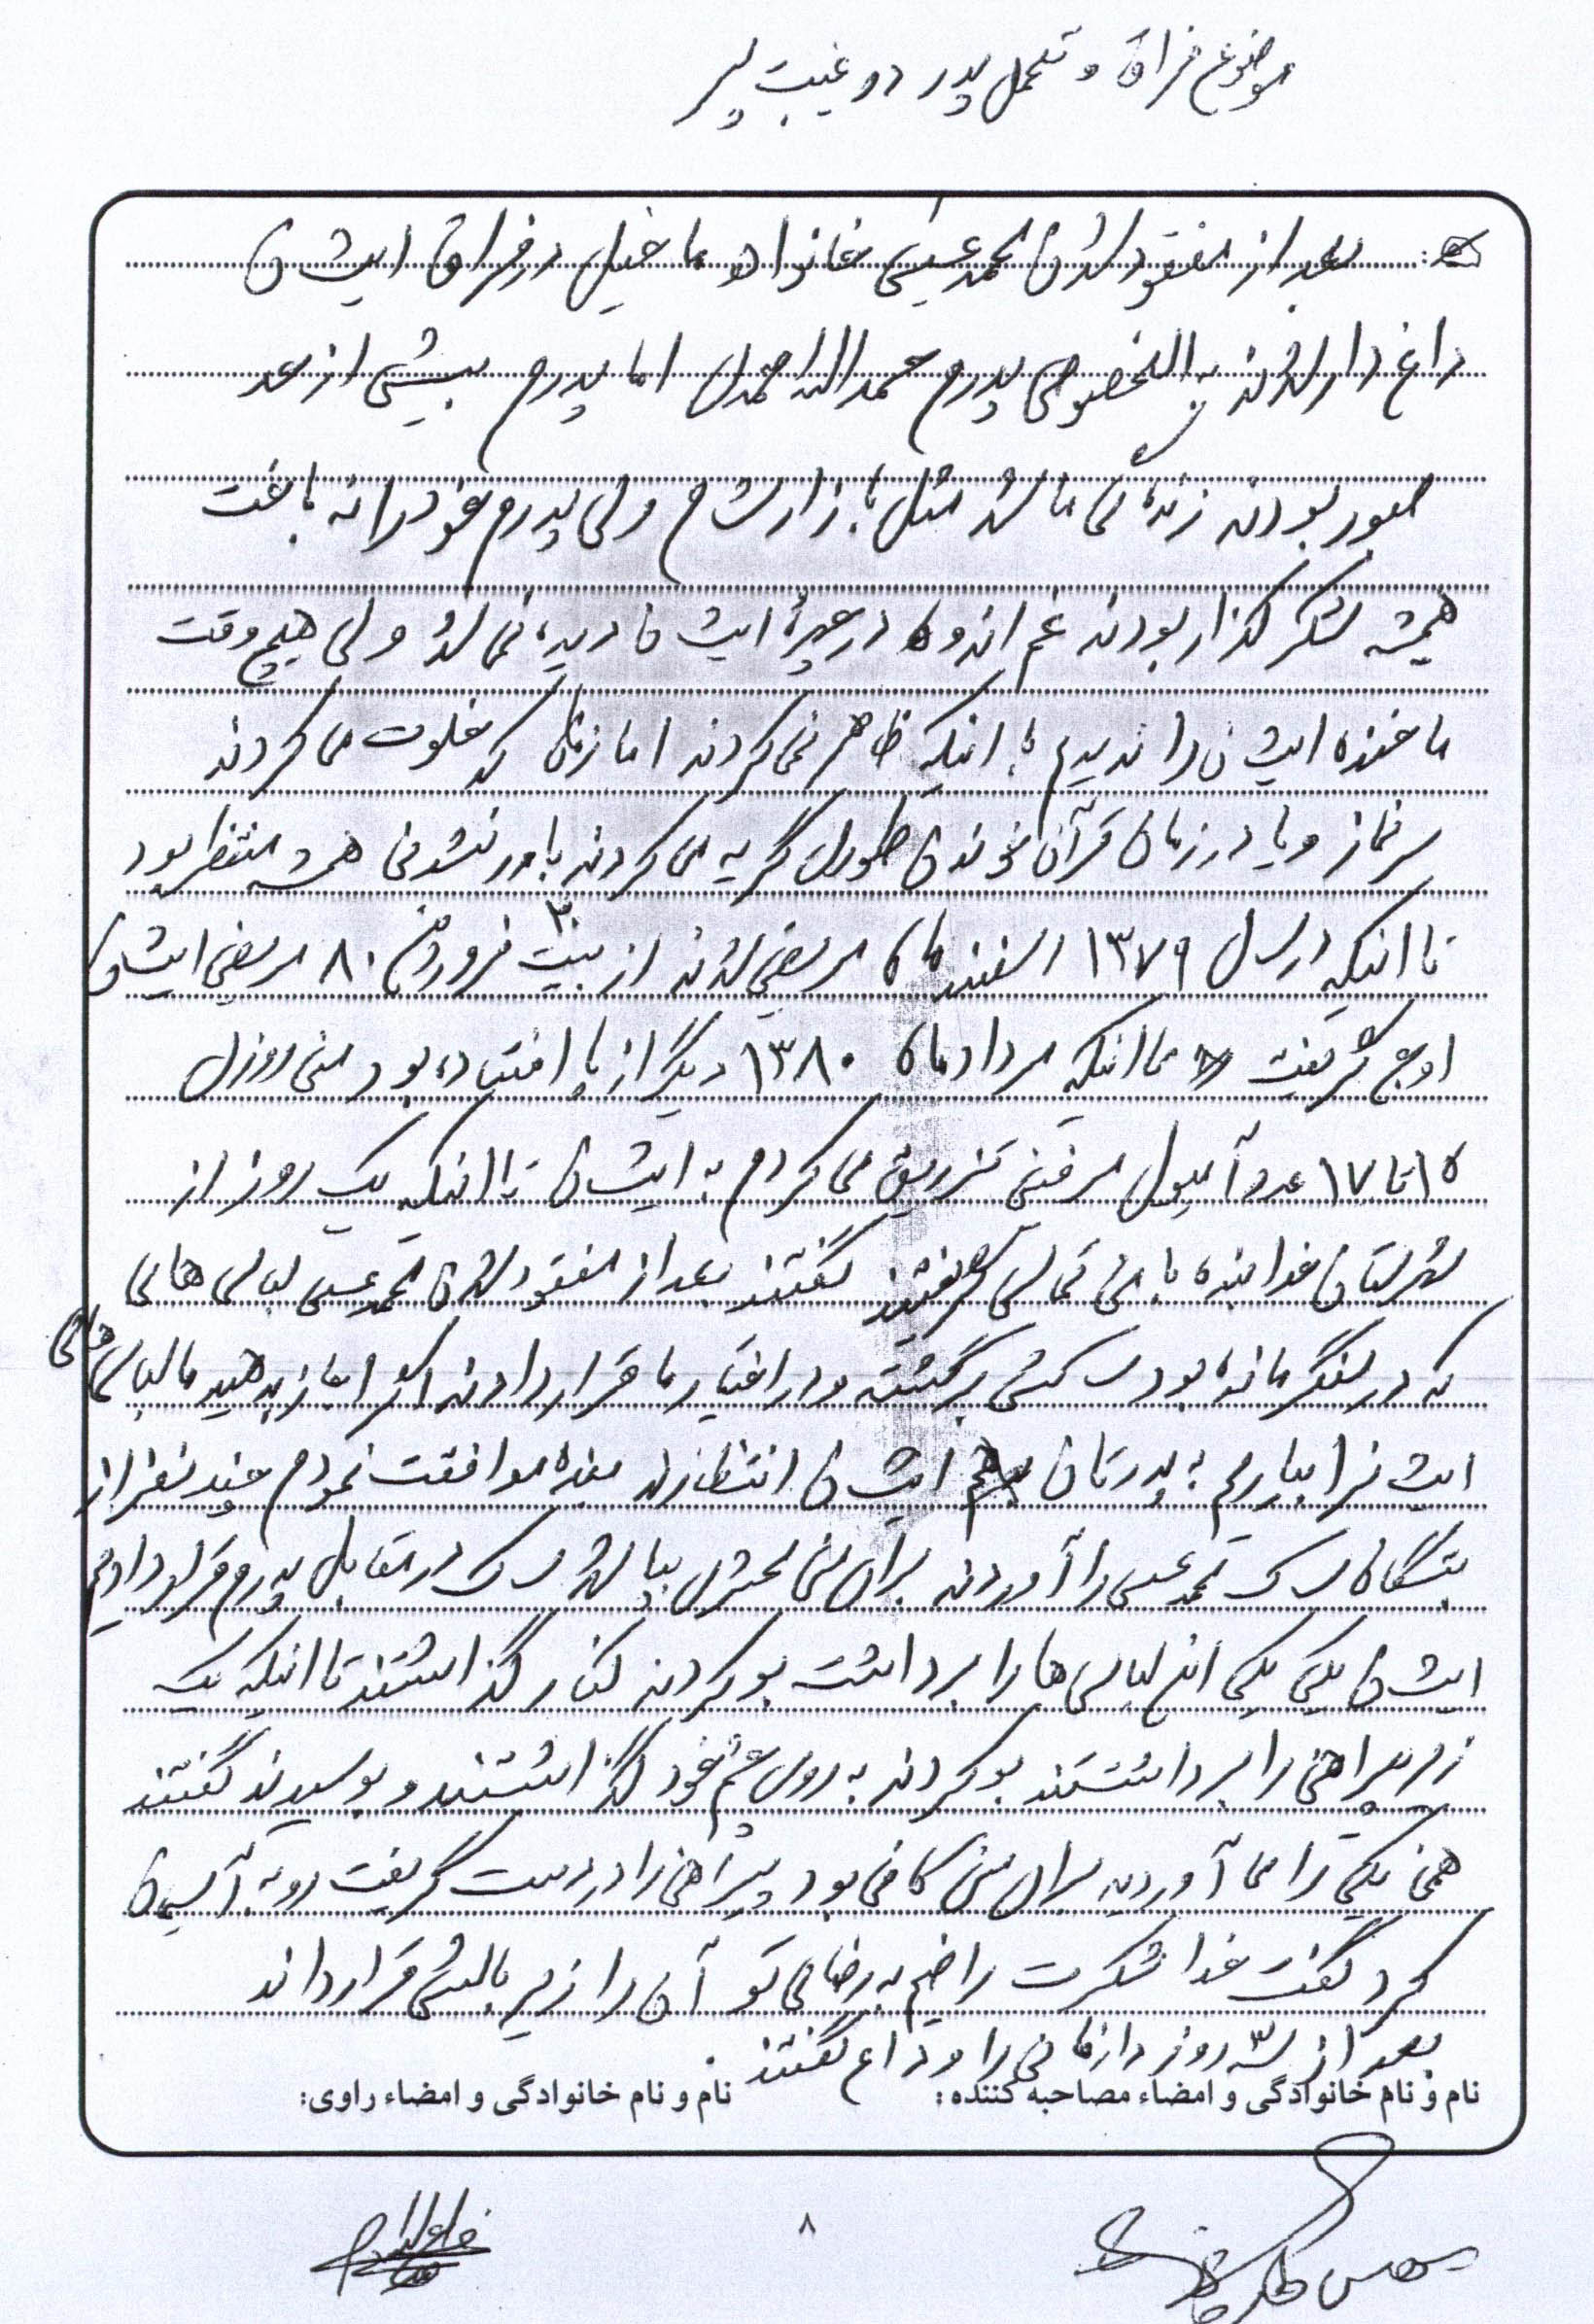 موضوع فراق و تحمل پدر در غیبت پسر
بعد از مفقود شدن محمد عیسی خانواده ما خیلی در فراق ایشان
داغ دار شدند به الخصوص پدرم حمدالله احمدی اما پدرم بیش از حد
صبور بودند زنده گی ما شد مثل بازار شام ولی پدرم خود را نه باخت
همیشه شکر گذار بودند غم اندوه در چهرۀ ایشان دیده نمی شد ولی هیچ وقت
ما خنده ایشان را ندیدیم با اینکه ظاهر نمی کردند اما زمان که خلوت می کردند
سر نماز و یا در زمان قرآن خوندن طوری گریه می کردند باور نشدنی همیشه منتظر بود
تا اینکه در سال ۱۳۷۹ اسفند ماه مریض شدند از بیست ۲۰ فروردین ۸۰ مریضی ایشان
اوج گرفت تا اینکه مرداد ماه ۱۳۸۰ دیگر از پا افتیاده بود من روزی
۱۵ تا ۱۷ عدد آمپول مرفین تزریق می کردم به ایشان تا اینکه یک روز از
شهرستان خدابنده با من تماس گرفتند گفتند بعد از مفقود شدن محمد عیسی لباس های
که در سنگر مانده بود ساکش برگشته و در اختیار ما قرار دادند اگر اجازه بدهید ما لباس های
ایشان را بیاریم به پدرتان بدهیم ایشان انتظارند بنده موافقت نمودم چند نفر از
بستگان ساک محمد عیسی را آوردند برای من محشری بپا شد ساک در مقابل پدرم قرار دادیم
ایشان یکی یکی این لباس ها را برداشت بو کردند کنار گذاشتند تا اینکه یک
زیر پیراهنی را برداشتند بو کردند به روی چشم خود گذاشتند و بوسیدند گفتند
همین یکی را می آوردید برای من کافی بود پیراهن را در دست گرفت رو به آسمان
کرد گفت خدا شکرت راضیم به رضای تو آن را زیر بالش قرار داند
بعد از سه روز دار فانی را وداع گفتند.
نام و نام خانوادگی و امضاء مصاحبه کننده: نام و نام خانوادگی و امضاء راوی:
۸